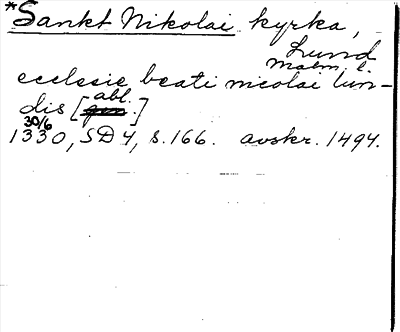 *Sankt Nikolai kyrka,
Lund
Malm. l.
ecclesie beati nicolai lun-
abl.
dis [gen.]
30/6
1330, SD 4, s. 166. avskr. 1494.